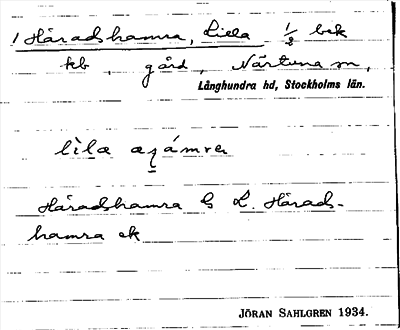 1 Håradshamra, Lilla ½ bek
kb, gård, Närtuna sn,
Långhundra hd, Stockholms län.
lìla aʒámra
Håradshamra G L. Hårads-
hamra ek
JÖRAN SAHLGREN 1934.